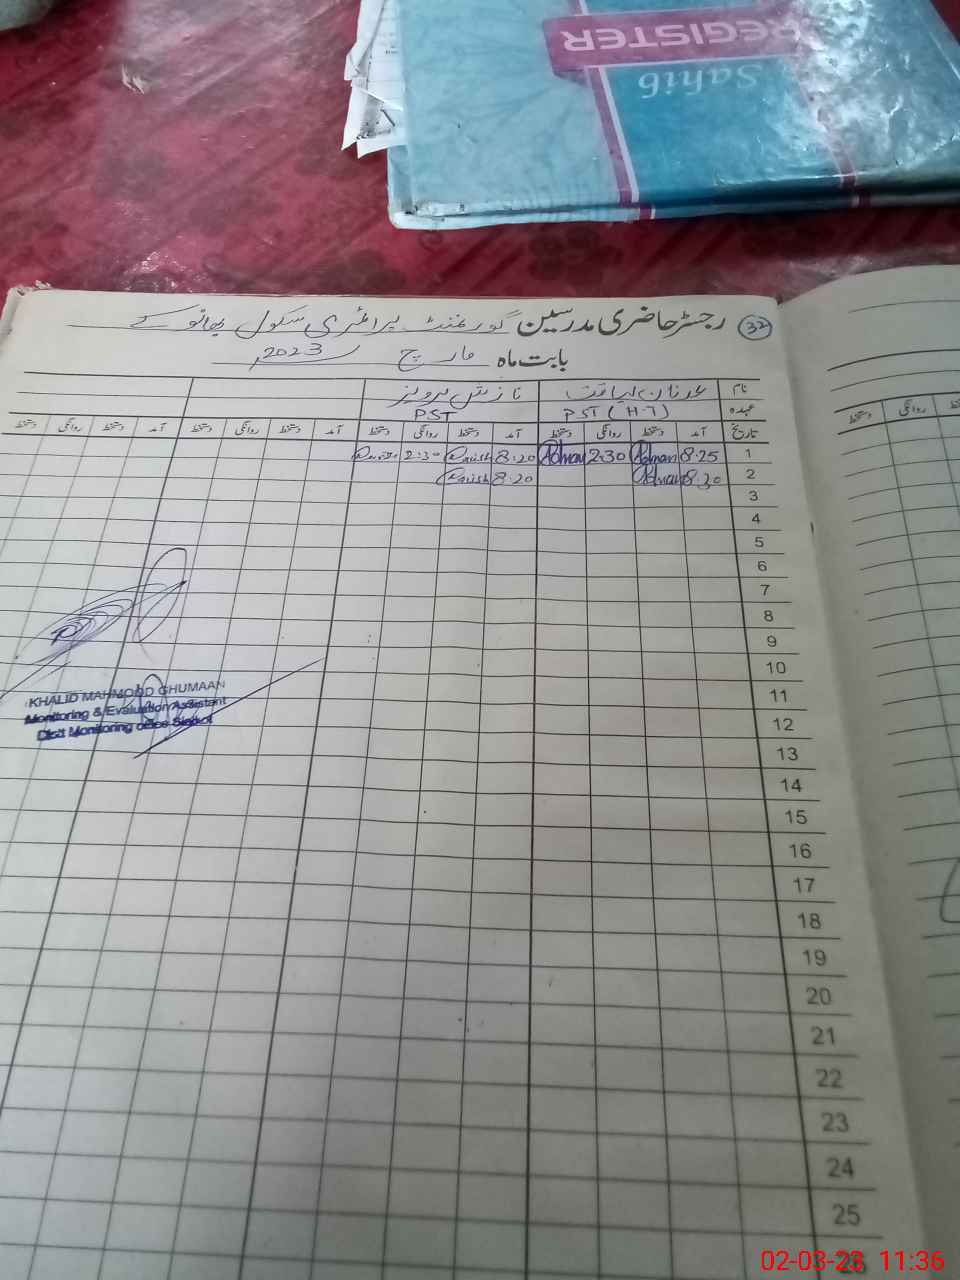 REGISTER
Sahib
رجسٹر حاضری مدرسین گورنمنٹ پرائمری سکول بھانو کے
32
بابت ماہ مارچ 2023
نام عدنان لیاقت نازش پرویز
عہدہ PST (H-T) PST
تاریخ آمد دستخط روانگی دستخط آمد دستخط روانگی دستخط آمد دستخط روانگی دستخط آمد دستخط روانگی دستخط
1 8:25 Adnan 2:30 Adnan 8:20 2:30
2 8:20 Adnan 8:20
3
4
5
6
7
8
9
10
11
12
13
14
15
16
17
18
19
20
21
22
23
24
25
26
KHALID MAHMOOD GHUMAAN
Monitoring & Evaluation Assistant
Distt Monitoring office Sialkot
روانگی دستخط
02-03-23 11:36